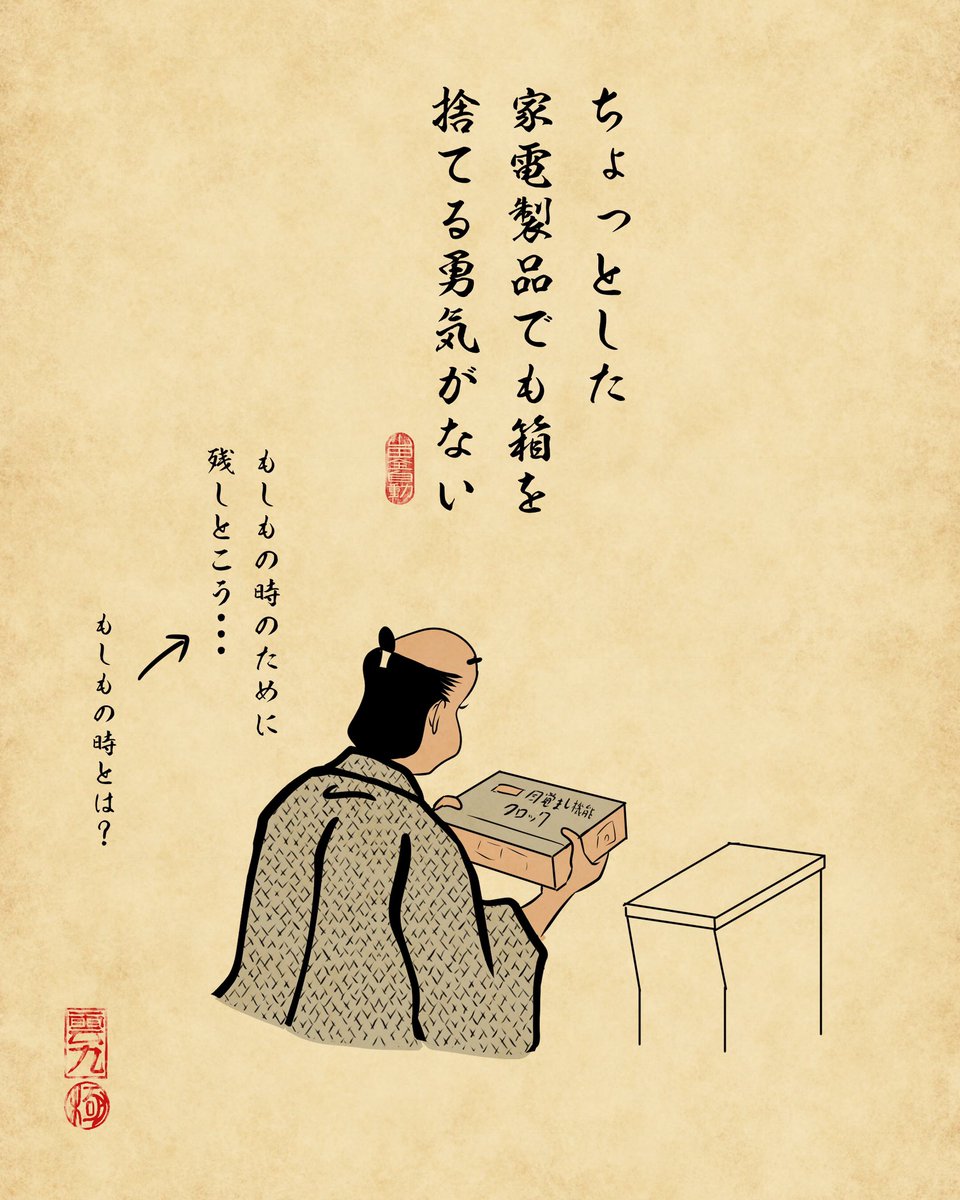 ちょっとした
家電製品でも箱を
捨てる勇気がない
もしもの時のために
残しとこう・・・
もしもの時とは？
目覚まし機能
クロック